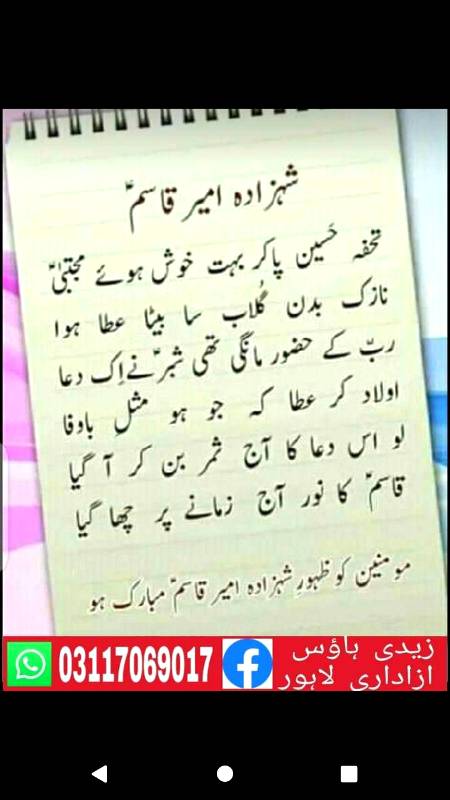 شہزادہ امیر قاسمؑ
تحفہ حَسین پاکر بہت خوش ہوئے مجتبیٰؑ
نازک بدن گُلاب سا بیٹا عطا ہوا
ربّ کے حضور مانگی تھی شبرؑ نے اِک دعا
اولاد کر عطا کہ جو ہو مثلِ باوفا
لو اس دعا کا آج ثمر بن کر آ گیا
قاسمؑ کا نور آج زمانے پر چھا گیا
مومنین کو ظہورِ شہزادہ امیر قاسمؑ مبارک ہو
زیدی ہاؤس
ازاداری لاہور
03117069017